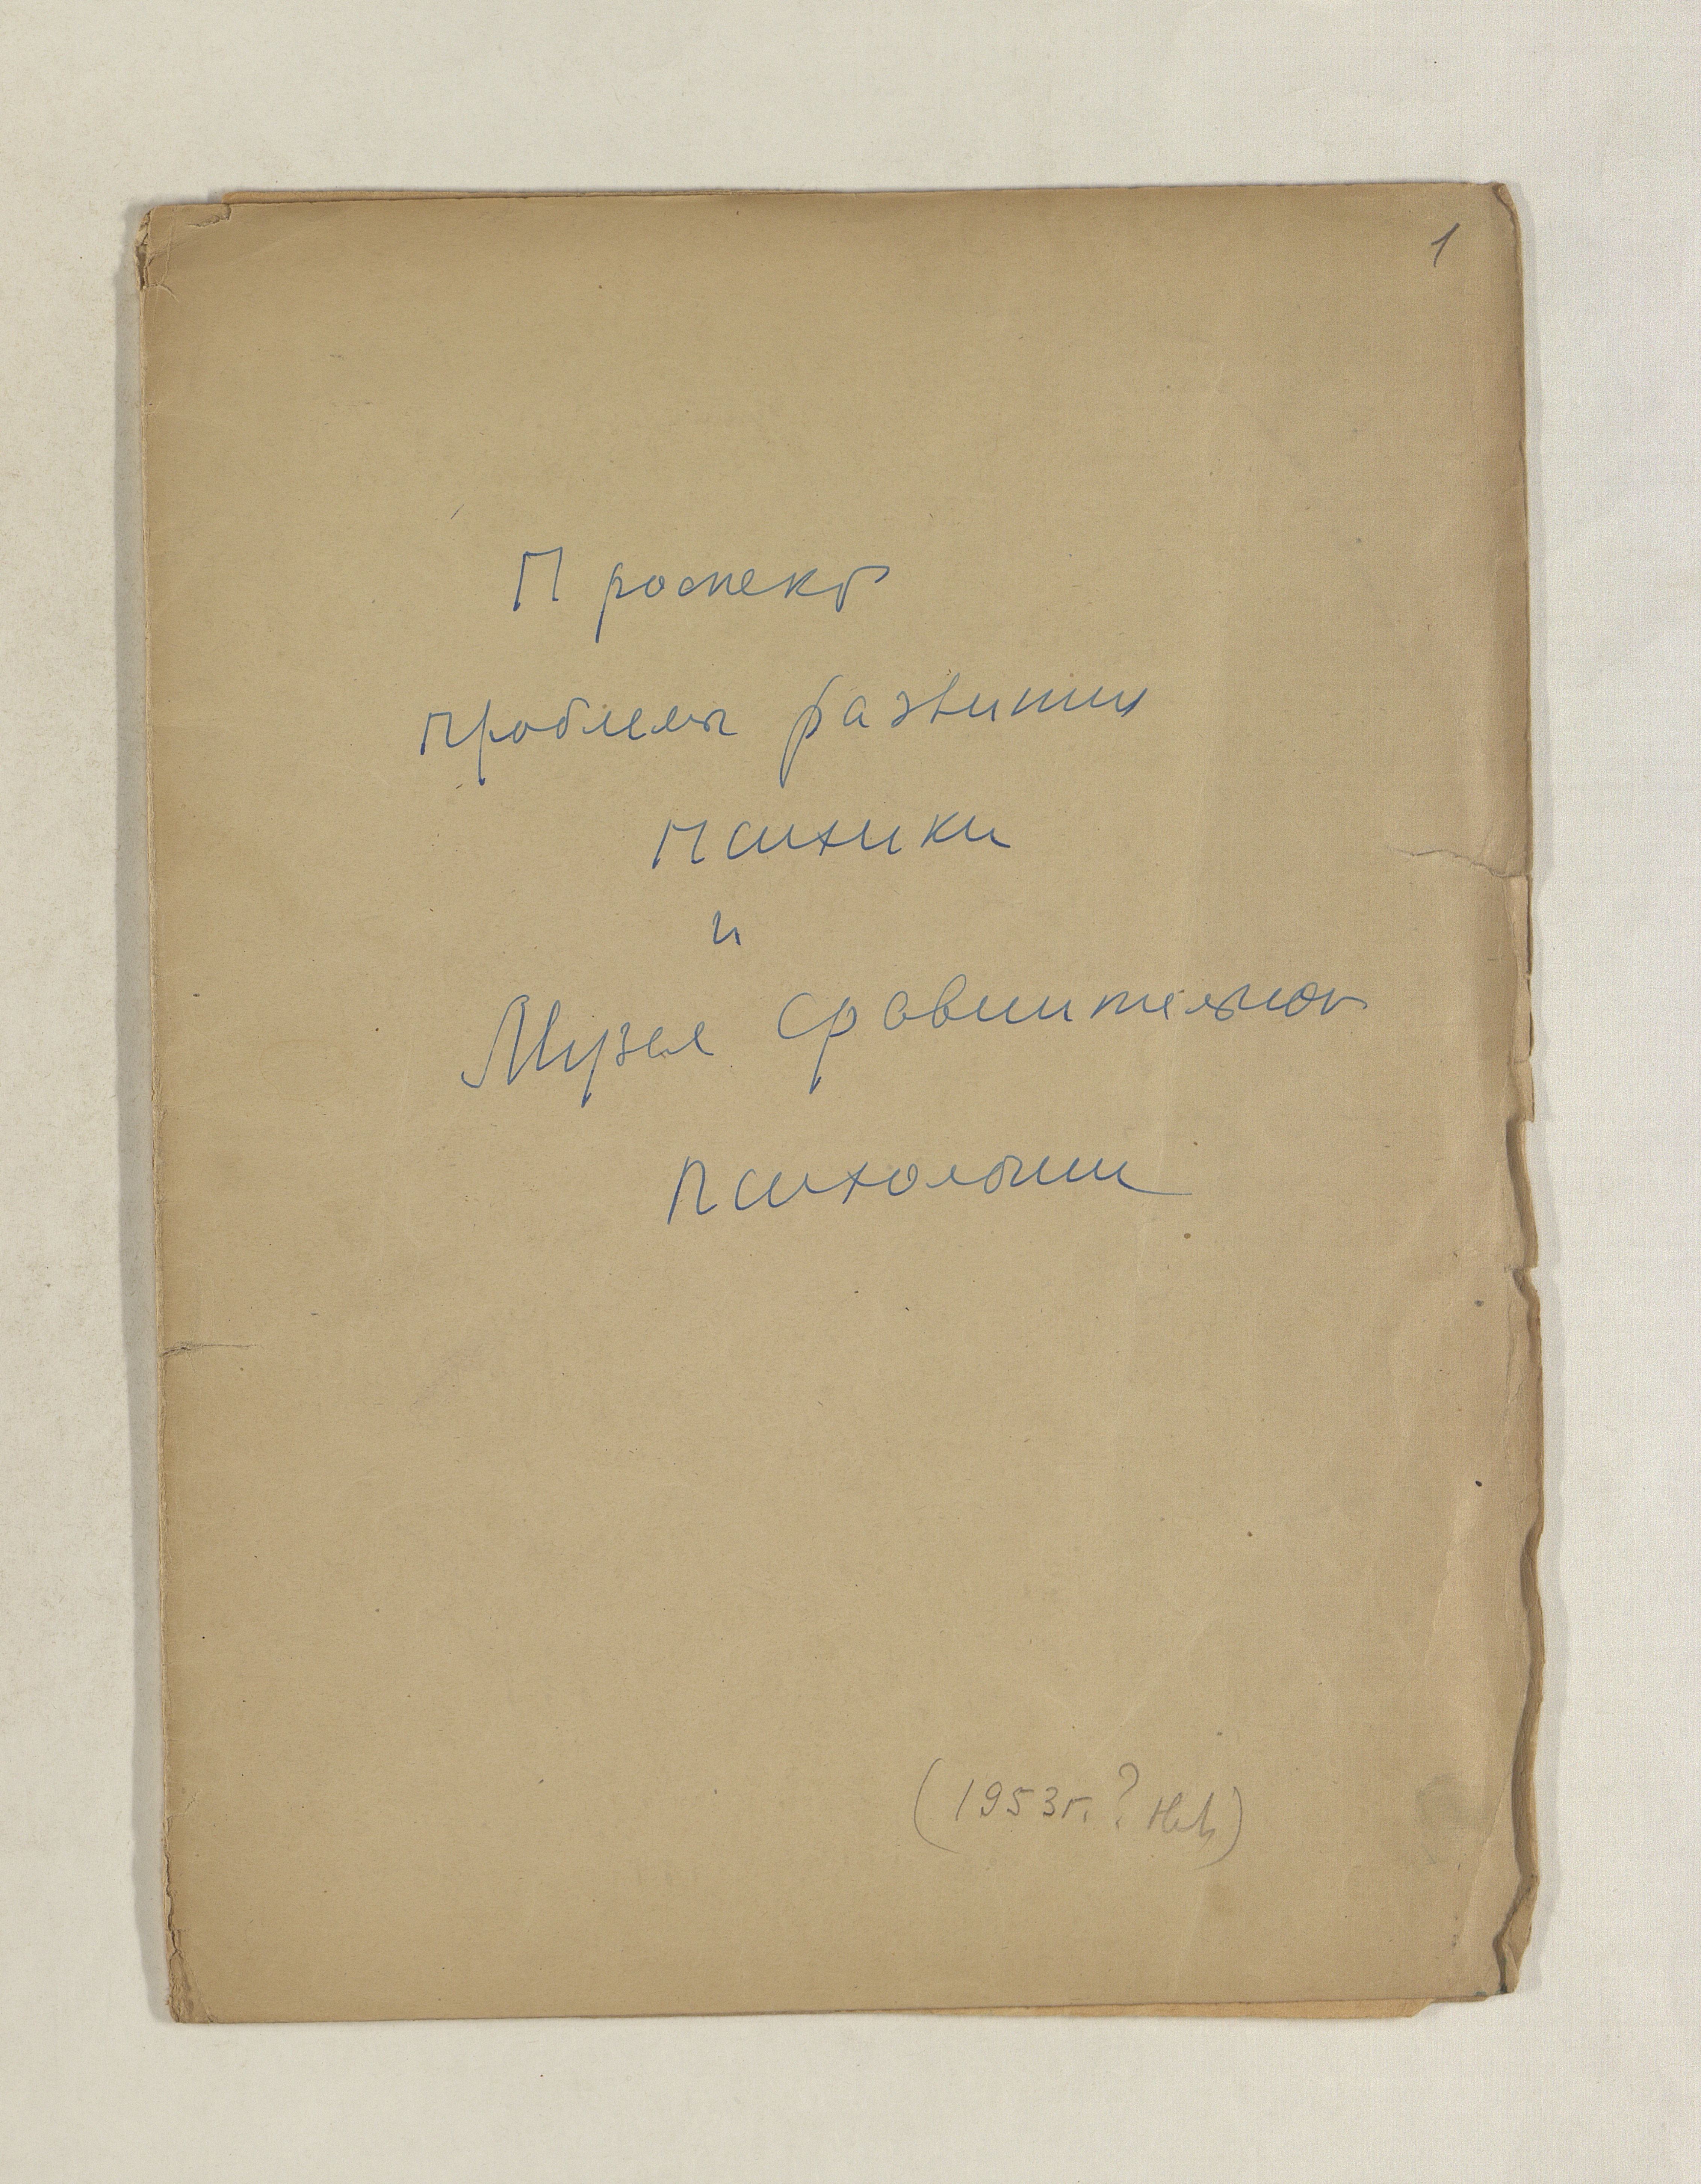 1
Проспект
проблемы развития
психики
и
Музея сравнительной
психологии
(1953г. ?